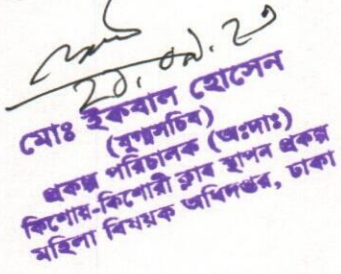 মোঃ ইকবাল হোসেন
(যুগ্মসচিব)
প্রকল্প পরিচালক (অঃদাঃ)
কিশোর-কিশোরী ক্লাব স্থাপন প্রকল্প
মহিলা বিষয়ক অধিদপ্তর, ঢাকা